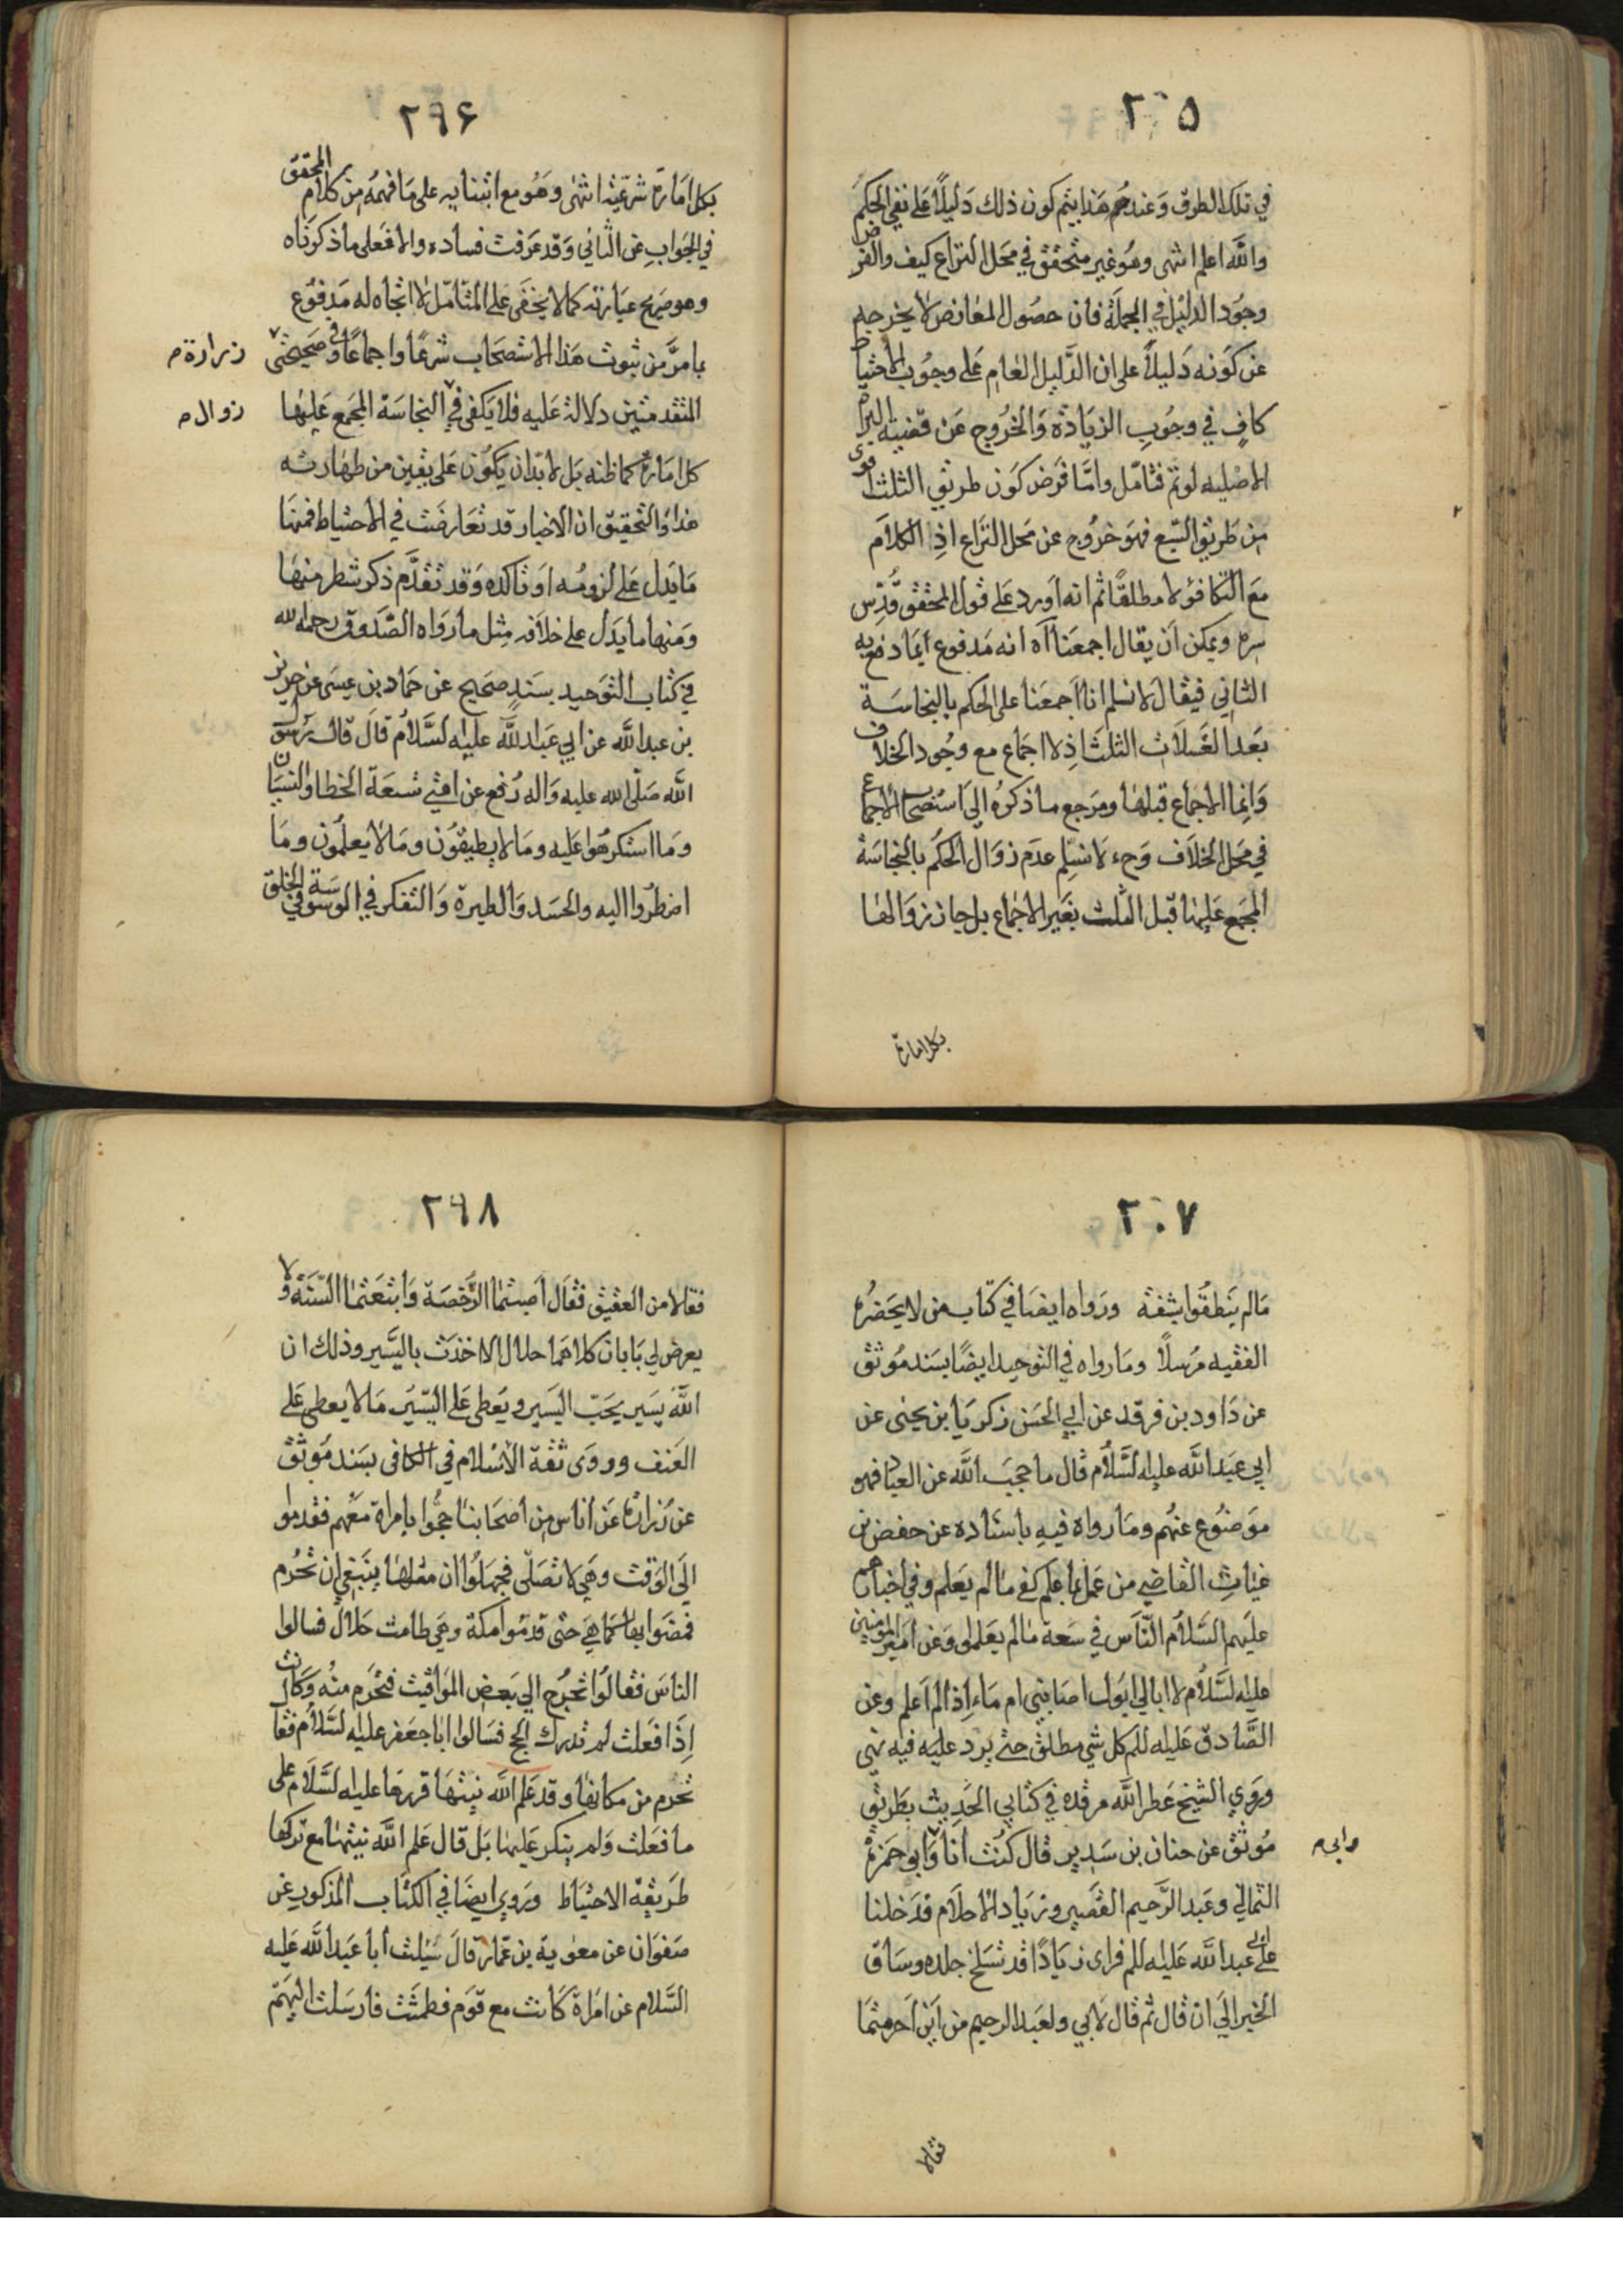 ٢٠٥
في تلك الطرق وعندهم هذا يتم كون ذلك دليلاً على نفي الحكم
والله اعلم انتهى وهو غير متحقق في محل النزاع كيف والفرض
وجود الدليل في الجملة فان حصول المعارض لا يخرجه
عن كونه دليلاً على ان الدليل العام على وجوب الاحتياط
كافٍ في وجوب الزيادة والخروج عن قضية البراءة
الاصلية لو تم فتأمل واما فرض كون طريق الثلث اقوى
من طريق السبع فهو خروج عن محل النزاع اذ الكلام
مع التكافؤ لا مطلقًا ثم انه اورد على قول المحقق قدس
سره ويمكن ان يقال اجمعنا آه انه مدفوع ايما دفع به
الثاني فيقال لا نسلم انا اجمعنا على الحكم بالنجاسة
بعد الغسلات الثلث اذ لا اجماع مع وجود الخلاف
وانما الاجماع قبلها ومرجع ما ذكره الى استصحاب الاجماع
في محل الخلاف وح لا نسلم عدم زوال الحكم بالنجاسة
المجمع عليها قبل الثلث بغير الاجماع بل جاز زوالها
بكل امارة
٢٩۶
بكل امارة شرعية انتهى وهو مع ابتنايه على ما فهمه من كلام المحقق
في الجواب عن الثاني وقد عرفت فساده والا فعلى ما ذكرناه
وهو صريح عبارته كما لا يخفى على المتأمل لا اتجاه له مدفوع
بما مر من ثبوت هذا الاستصحاب شرعًا واجماعًا وفي صحيحتي
زرارة م
المتقدمتين دلالة عليه فلا يكفي في النجاسة المجمع عليها
زوال م
كل امارة كما ظنه بل لا بد ان يكون على يقين من طهارته
هذا والتحقيق ان الاخبار قد تعارضت في الاحتياط فمنها
ما يدل على لزومه او تاكده وقد تقدم ذكر شطر منها
ومنها ما يدل على خلافه مثل ما رواه الصدوق رحمه الله
في كتاب التوحيد بسندٍ صحيح عن حماد بن عيسى عن حريز
بن عبد الله عن ابي عبد الله عليه السلام قال قال رسول
الله صلى الله عليه واله رفع عن امتي تسعة الخطا والنسيان
وما استكرهوا عليه وما لا يطيقون وما لا يعلمون وما
اضطروا اليه والحسد والطيرة والتفكر في الوسوسة في الخلق
٢٠٧
ما لم ينطقوا بشفة ورواه ايضا في كتاب من لا يحضره
الفقيه مرسلاً وما رواه في التوحيد ايضًا بسند موثق
عن داود بن فرقد عن ابي الحسن زكريا بن يحيى عن
ابي عبد الله عليه السلام قال ما حجب الله عن العباد فهو
موضوع عنهم وما رواه فيه باسناده عن حفص بن
غياث القاضي من عمل بما علم كفى ما لم يعلم وفي اخبارهم
عليهم السلام الناس في سعة ما لم يعلموا وعن امير المؤمنين
عليه السلام لا ابالي ابول اصابني ام ماء اذا لم اعلم وعن
الصادق عليه السلم كل شي مطلق حتى يرد عليه فيه نهي
وروي الشيخ عطر الله مرقده في كتابي الحديث بطريق
موثق عن حنان بن سدير قال كنت انا وابو حمزة
و ابي م
الثمالي وعبد الرحيم القصير وزياد الاحلام فدخلنا
على ابي عبد الله عليه السلم فراى زيادًا قد تسلخ جلده وساق
الخبر الى ان قال ثم قال لابي ولعبد الرحيم من اين احرمتما
فقالا
٢٩٨
فقالا من العقيق فقال اصبتما الرخصة وابتعتما السنة ولا
يعرض لي بابان كلاهما حلال الا اخذت باليسير وذلك ان
الله يسير يحب اليسير ويعطى على اليسير ما لا يعطى على
العنف وروى ثقة الاسلام في الكافى بسند موثق
عن زرارة عن اناس من اصحابنا حجوا بامراة معهم فقدموا
الى الوقت وهي لا تصلى فجهلوا ان مثلها ينبغي ان تحرم
فمضوا بها كما هي حتى قدموا مكة وهي طامث حلال فسالوا
الناس فقالوا تخرج الي بعض المواقيت فتحرم منه وكانت
اذا فعلت لم تدرك الحج فسالوا ابا جعفر عليه السلام فقال
تحرم من مكانها وقد علم الله نيتها قررها عليه السلام على
ما فعلت ولم ينكر عليها بل قال علم الله نيتها مع تركها
طريقة الاحتياط وروي ايضا في الكتاب المذكور عن
صفوان عن معوية بن عمار قال سئلت أبا عبد الله عليه
السلام عن امراة كانت مع قوم فطمثت فارسلت اليهم